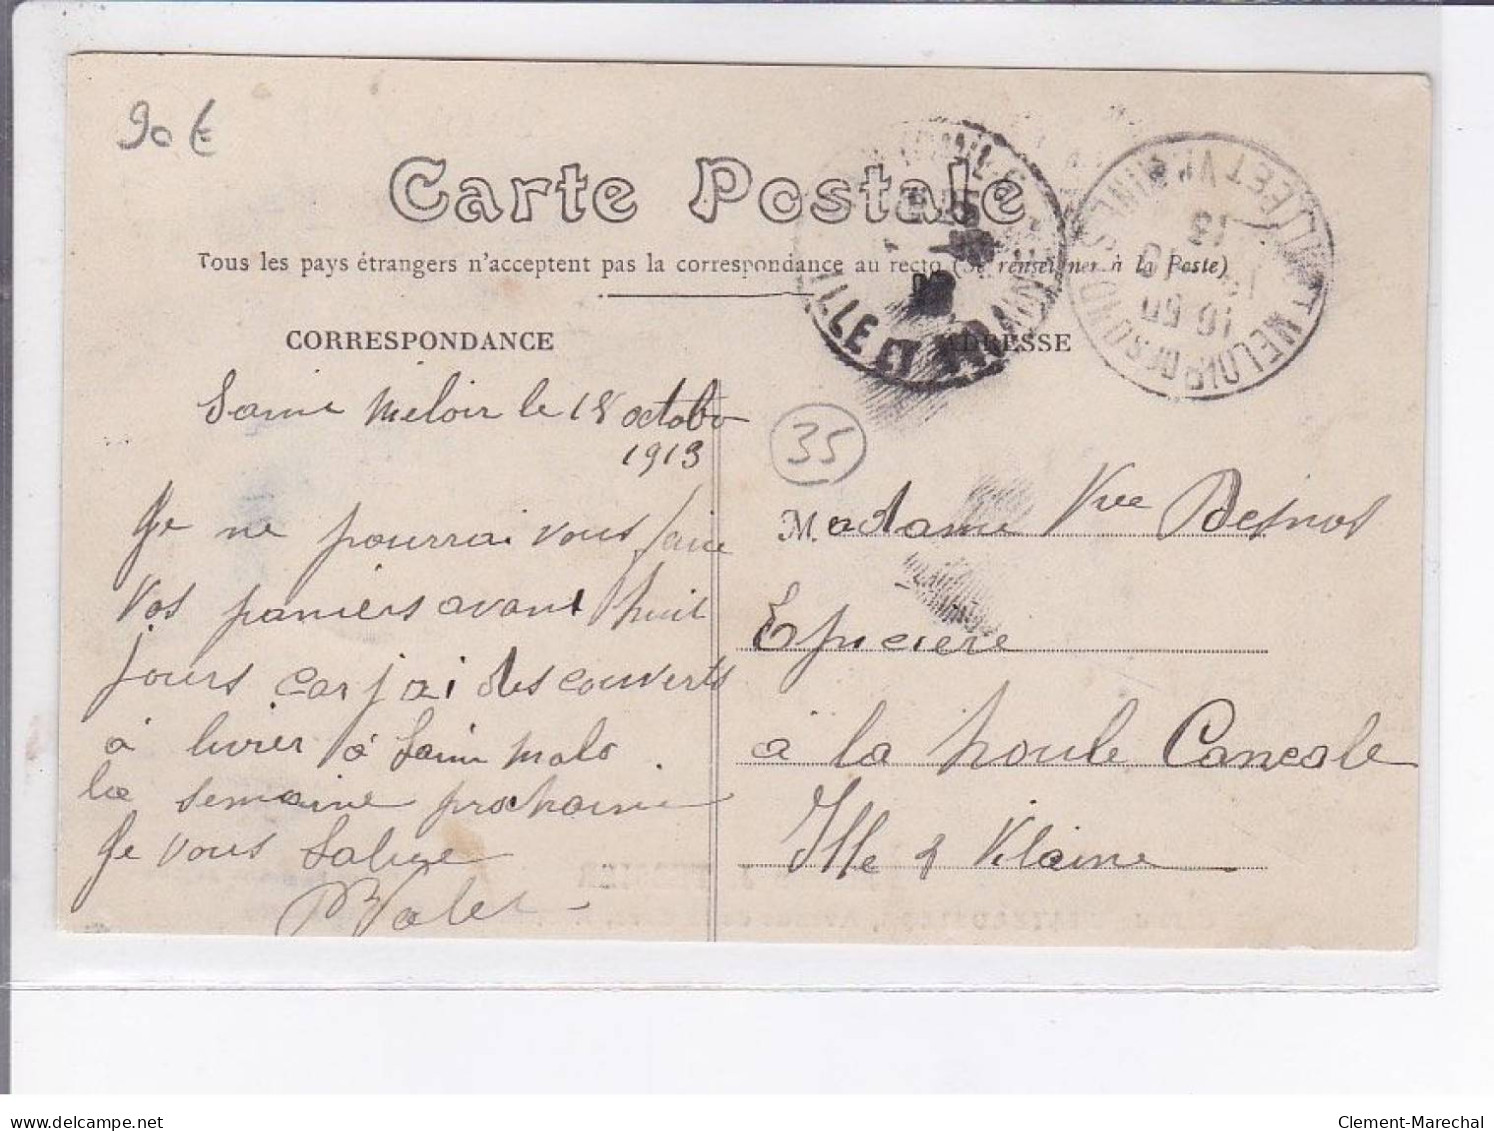 90 €
Carte Postale
Tous les pays étrangers n'acceptent pas la correspondance au recto (Se renseigner à la Poste)
CORRESPONDANCE
ADRESSE
ILLE ET VILAINE
ST MELOIR DES ONDES
ILLE ET VILAINE
16 50
13
Saint Meloir le 15 octobre
1913
35
Je ne pourrai vous faire
vos paniers avant huit
jours car j ai des couverts
à livrer à Saint Malo
la semaine prochaine
Je vous Salue
M. adame Vve Desnos
Epiciere
a la houle Cancale
Ille & Vilaine
Clement-Marechal